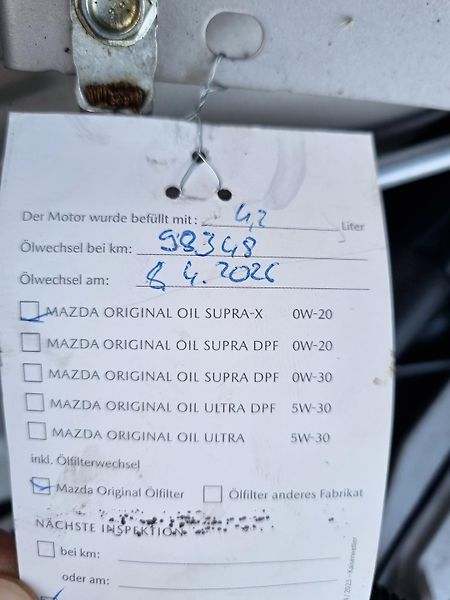 Der Motor wurde befüllt mit: 4,2 Liter
Ölwechsel bei km: 98348
Ölwechsel am: 8 4.2026
MAZDA ORIGINAL OIL SUPRA-X 0W-20
MAZDA ORIGINAL OIL SUPRA DPF 0W-20
MAZDA ORIGINAL OIL SUPRA DPF 0W-30
MAZDA ORIGINAL OIL ULTRA DPF 5W-30
MAZDA ORIGINAL OIL ULTRA 5W-30
inkl. Ölfilterwechsel
Mazda Original Ölfilter Ölfilter anderes Fabrikat
NÄCHSTE INSPEKTION
bei km:
oder am:
/ 2023 - Kaiserwetter